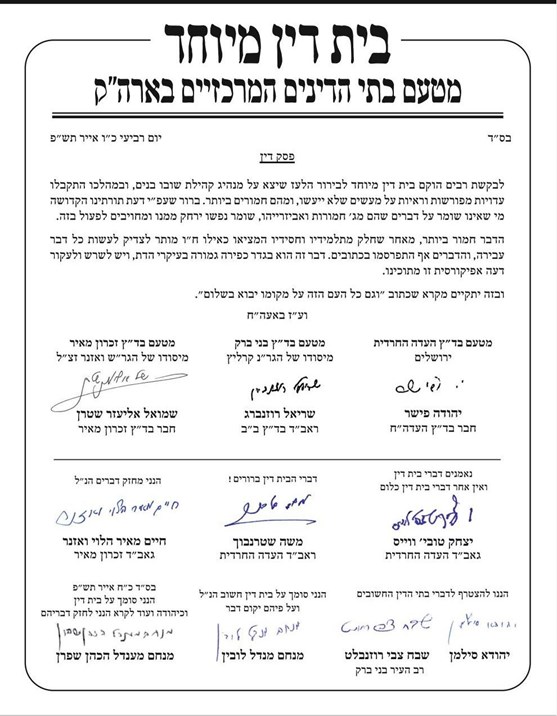 בית דין מיוחד
מטעם בתי הדינים המרכזיים בארה"ק
בס"ד
יום רביעי כ"ו אייר תש"פ
פסק דין
לבקשת רבים הוקם בית דין מיוחד לבירור הלעז שיצא על מנהיג קהילת שובו בנים, ובמהלכו התקבלו
עדויות מפורשות וראיות על מעשים שלא ייעשו, ומהם חמורים ביותר. ברור שעפ"י דעת תורתינו הקדושה
מי שאינו שומר על דברים שהם מג' חמורות ואביזרייהו, שומר נפשו ירחק ממנו ומחויבים לפעול בזה.
הדבר חמור ביותר, מאחר שחלק מתלמידיו וחסידיו המציאו כאילו ח"ו מותר לצדיק לעשות כל דבר
עבירה, והדברים אף התפרסמו בכתובים. דבר זה הוא בגדר כפירה גמורה בעיקרי הדת, ויש לשרש ולעקור
דעה אפיקורסית זו מתוכינו.
ובזה יתקיים מקרא שכתוב "וגם כל העם הזה על מקומו יבוא בשלום".
וע"ז באעה"ח
מטעם בד"ץ העדה החרדית
ירושלים
יהודה פישר
חבר בד"ץ העדה"ח
מטעם בד"ץ בני ברק
מיסודו של הגר"נ קרליץ
שריאל רוזנברג
ראב"ד בד"ץ ב"ב
מטעם בד"ץ זכרון מאיר
מיסודו של הגר"ש ואזנר זצ"ל
שמואל אליעזר שטרן
חבר בד"ץ זכרון מאיר
נאמנים דברי בית דין
ואין אחר דברי בית דין כלום
יצחק טובי' ווייס
גאב"ד העדה החרדית
דברי הבית דין ברורים !
משה שטרנבוך
ראב"ד העדה החרדית
הנני מחזק דברים הנ"ל
חיים מאיר הלוי ואזנר
חיים מאיר הלוי ואזנר
גאב"ד זכרון מאיר
הננו להצטרף לדברי בתי הדין החשובים
יהודא סילמן
שבח צבי רוזנבלט
רב העיר בני ברק
הנני סומך על בית דין חשוב הנ"ל
ועל פיהם יקום דבר
מנחם מנדל לובין
בס"ד כ"ח אייר תש"פ
הנני סומך על בית דין
וכיהודה ועוד לקרא הנני לחזק דבריהם
מנחם מענדל הכהן שפרן